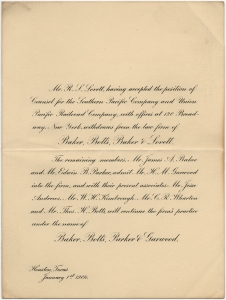 Mr. R. S. Lovett, having accepted the position of
Counsel for the Southern Pacific Company and Union
Pacific Railroad Company, with offices at 120 Broad-
way, New York, withdraws from the law firm of
Baker, Botts, Baker & Lovett.
The remaining members, Mr. James A. Baker
and Mr. Edwin B. Parker, admit Mr. H. M. Garwood
into the firm, and with their present associates, Mr. Jesse
Andrews, Mr. W. H. Kimbrough, Mr. C. R. Wharton
and Mr. Thos. H. Botts will continue the firm's practice
under the name of
Baker, Botts, Parker & Garwood.
Houston, Texas
January 1st 1904.